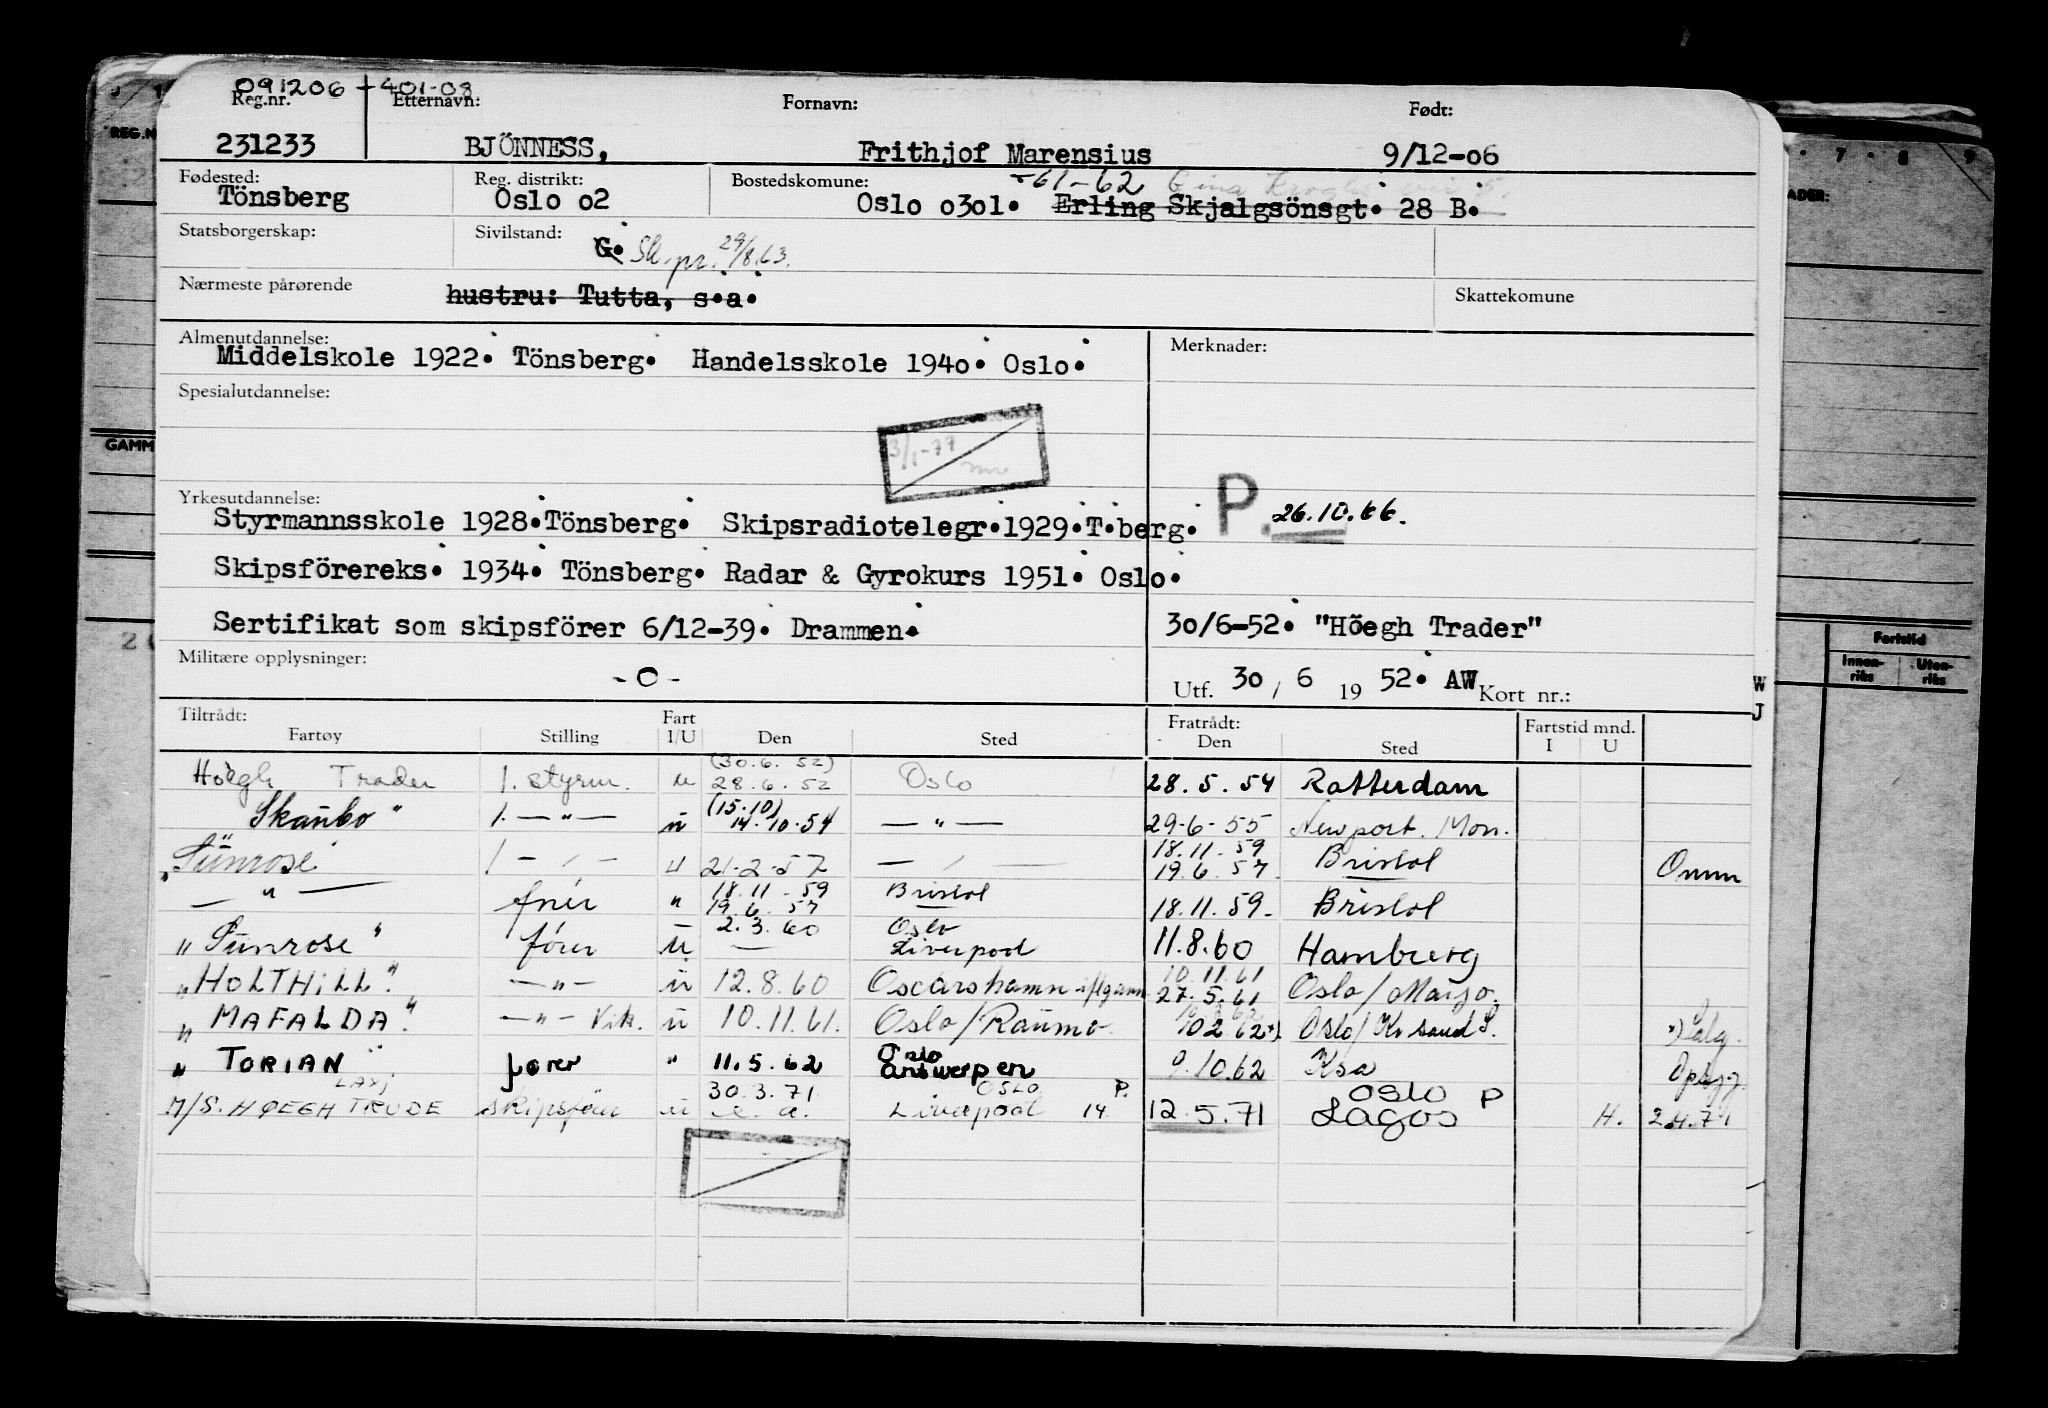 091206 - 401-08
Reg.nr. Etternavn: Fornavn: Født:
231233 BJÖNNESS, Frithjof Marensius 9/12-06
Fødested: Reg. distrikt: Bostedskomune: -61-62 Gina
Tönsberg Oslo o2 Oslo o3o1. Erling Skjalgsönsgt. 28 B.
Statsborgerskap: Sivilstand: G. Sk. pr. 29/8.63.
Nærmeste pårørende hustru: Tutta, s.a. Skattekomune
Almenutdannelse: Merknader:
Middelskole 1922. Tönsberg. Handelsskole 194o. Oslo.
Spesialutdannelse:
3/1-77
Yrkesutdannelse:
Styrmannsskole 1928.Tönsberg. Skipsradiotelegr.1929.T.berg. P. 26.10.66.
Skipsförereks. 1934. Tönsberg. Radar & Gyrokurs 1951. Oslo.
Sertifikat som skipsförer 6/12-39. Drammen. 30/6-52. "Höegh Trader"
Militære opplysninger: -0- Utf. 30 / 6 19 52. AW Kort nr.:
Tiltrådt: Fart Fratrådt: Fartstid mnd.
Fartøy Stilling I/U Den Sted Den Sted I U
(30.6.52)
Höegh Trader 1. styrm. u 28.6.52 Oslo 28.5.54 Rotterdam
(15.10)
Skaubo" 1. — " — u 14.10.54 — " — 29-6-55 Newport. Mon.
18.11.59
"Sunrose 1 — " — u 21-2-57 — " — 19.6.57 Bristol Omm
18.11.59 Bristol
— " — fører " 19.6.57 18.11.59. Bristol
2.3.60 Oslo
"Sunrose" fører u — Liverpool 11.8.60 Hamburg
10.11.61
"HOLTHILL." — " — u 12.8.60 Oscarshamn 27.5.61 Oslo/
"MAFALDA." — " — Vik. u 10.11.61. Oslo/Raumo 10 2 62 Oslo/Kr sand S. Salg.
Oslo
"TORIAN" fører " 11.5.62 Antwerpen 9.10.62 Ksa
30.3.71 OSLO P. OSLO P
M/S. HØEGH TRUDE skipsfører u Liverpool 14. 12.5.71 Lagos H. 2.4.71
REG.N
GAMM
7 8 9
ADER:
Fartstid
Innen-riks Uten-riks
W
J